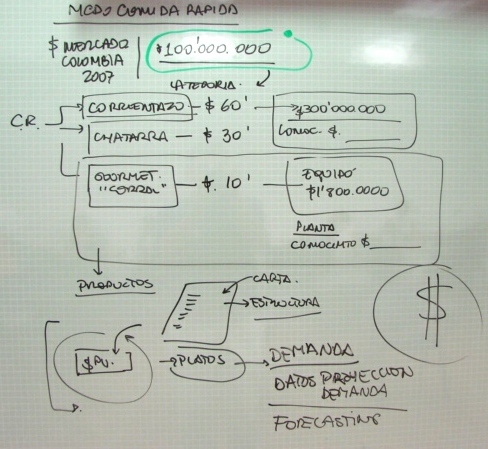 MCDO COMIDA RAPIDA
$ MERCADO COLOMBIA 2007
$100'000.000
CATEGORIA.
C.R.
CORRIENTAZO — $ 60'
$300'000.000
CONOC. $.
CHATARRA — $ 30'
GOURMET. "CORRAL"
— $. 10'
EQUIPO
$1'800.0000
PLANTA
CONOCIMTO $
PRODUCTOS
CARTA.
ESTRUCTURA
$
$PU.
PLATOS
DEMANDA
DATOS PROYECCION DEMANDA
FORECASTING